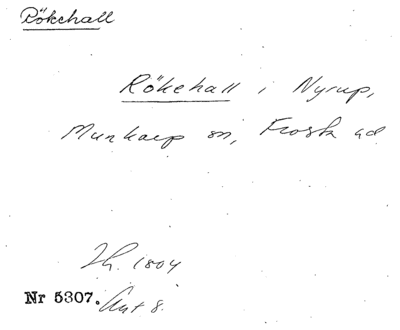 Rökehall
Rökehall i Nyrup,
Munkarp sn, Frosta hd
Lh. 1804
Nr 5307. Akt 8.